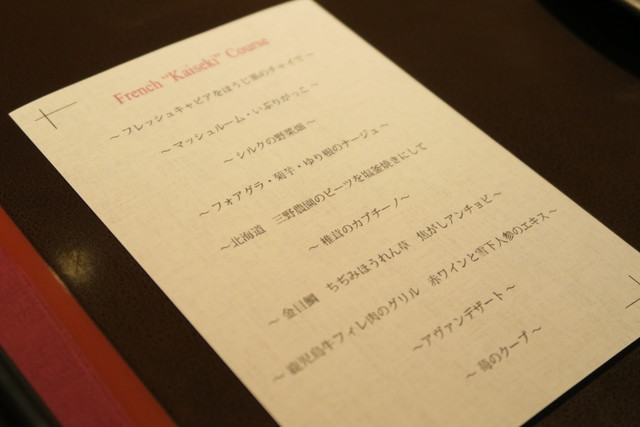 French "Kaiseki" Course
～フレッシュキャビアをほうじ茶のチャイで～
～マッシュルーム・いぶりがっこ～
～シルクの野菜畑～
～フォアグラ・菊芋・ゆり根のナージュ～
～北海道 三野農園のビーツを塩釜焼きにして
～椎茸のカプチーノ～
～金目鯛 ちぢみほうれん草 焦がしアンチョビ～
～鹿児島牛フィレ肉のグリル 赤ワインと雪下人参のエキス～
～アヴァンデザート～
～苺のクープ～